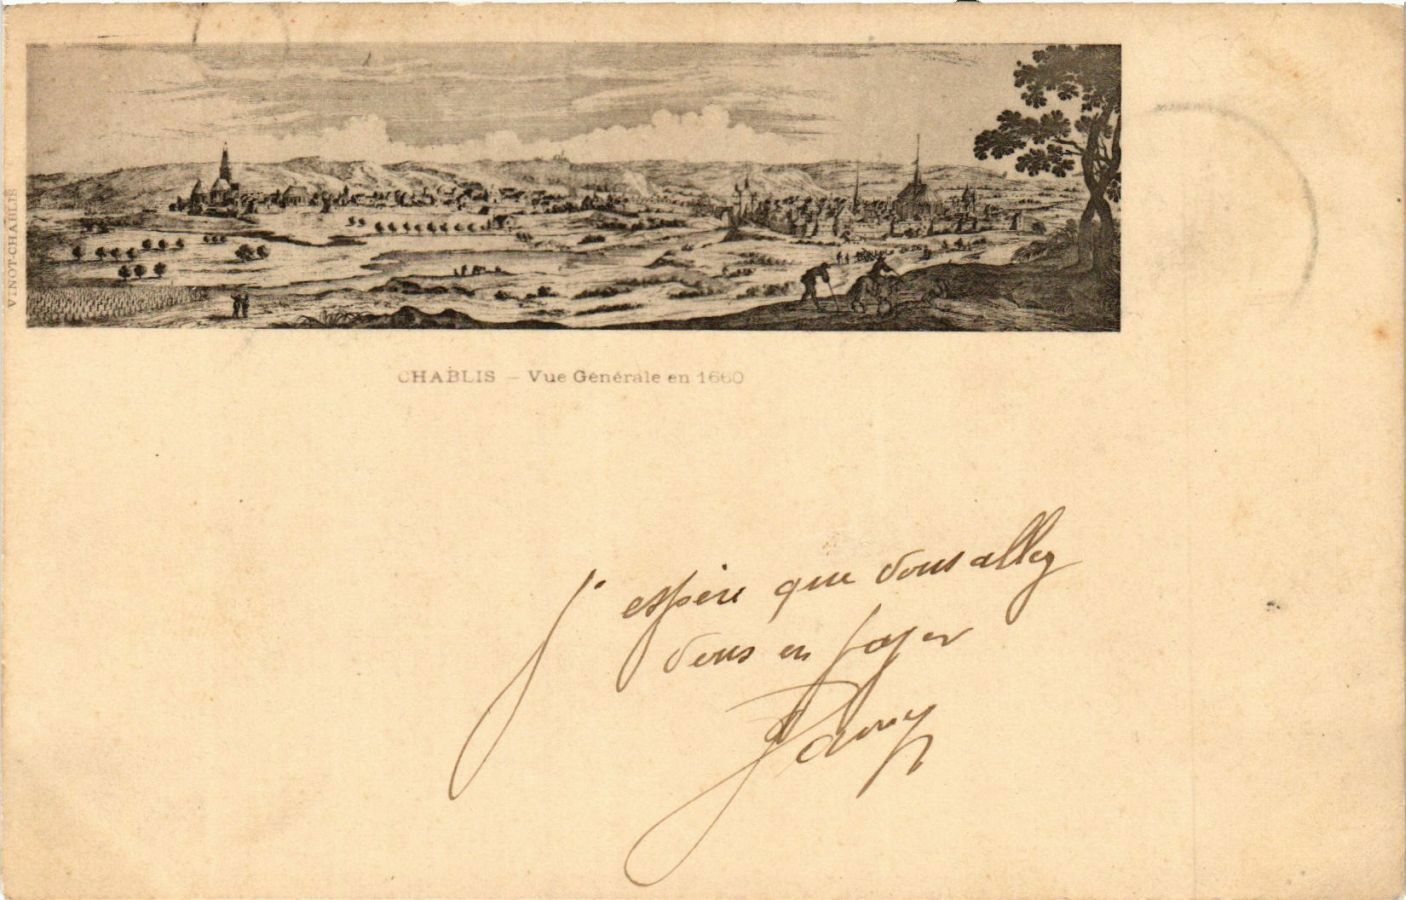 VINOT-CHABLIS
CHABLIS – Vue Générale en 1660
J'espère que vous allez
vous en payer